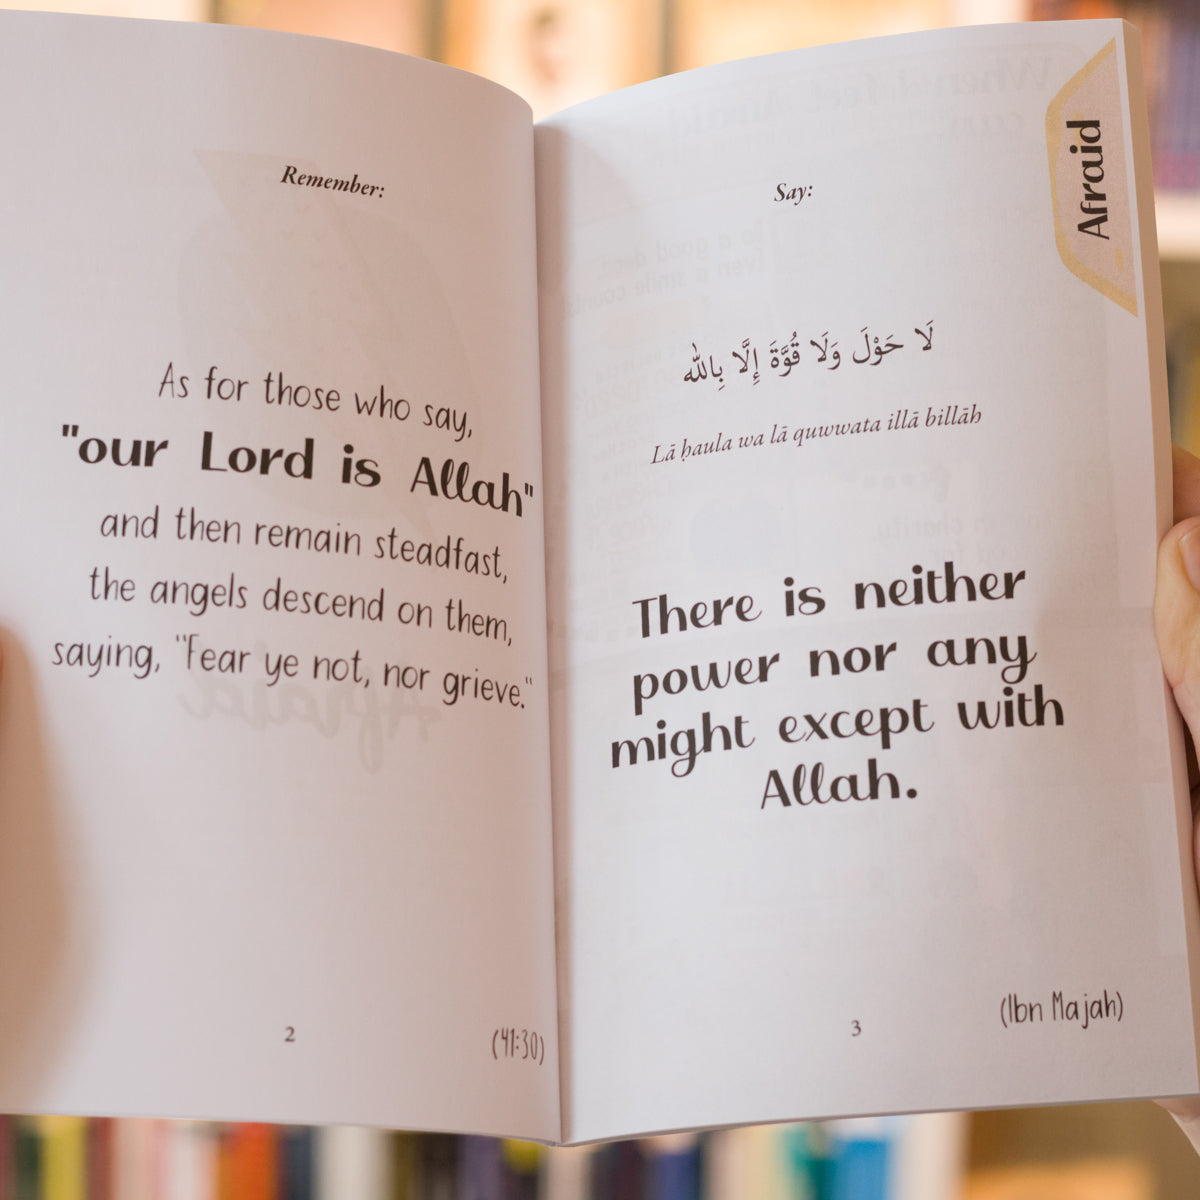 Remember:
As for those who say,
"our Lord is Allah"
and then remain steadfast,
the angels descend on them,
saying, "Fear ye not, nor grieve."
2
(41:30)
Afraid
Say:
لَا حَوْلَ وَلَا قُوَّةَ إِلَّا بِاللّٰه
Lā ḥaula wa lā quwwata illā billāh
There is neither
power nor any
might except with
Allah.
3
(Ibn Majah)